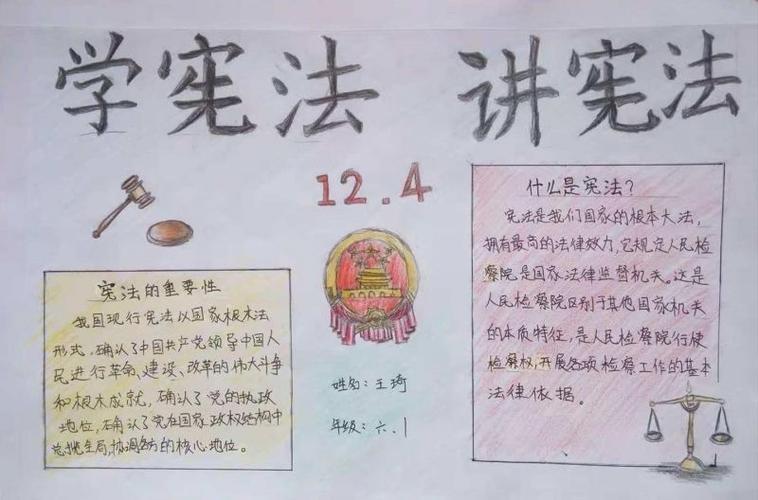 学宪法 讲宪法
12.4
宪法的重要性
我国现行宪法以国家根本法
形式,确认了中国共产党领导中国人
民进行革命、建设、改革的伟大斗争
和根本成就,确认了党的执政
地位,确认了党在国家政权结构中
总揽全局,协调各方的核心地位。
姓名:王琦
年级:六.1
什么是宪法?
宪法是我们国家的根本大法,
拥有最高的法律效力,它规定人民检
察院是国家法律监督机关。这是
人民检察院区别于其他国家机关
的本质特征,是人民检察院行使
检察权,开展各项检察工作的基本
法律依据。